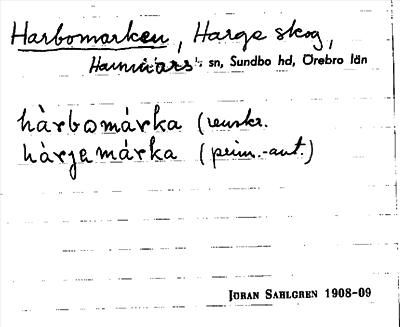 Harbomarken, Harge skog,
Hammars sn, Sundbo hd, Örebro län
hàrbomárka (renskr.
hàrjamárka (prim.-ant.)
JÖRAN SAHLGREN 1908-09